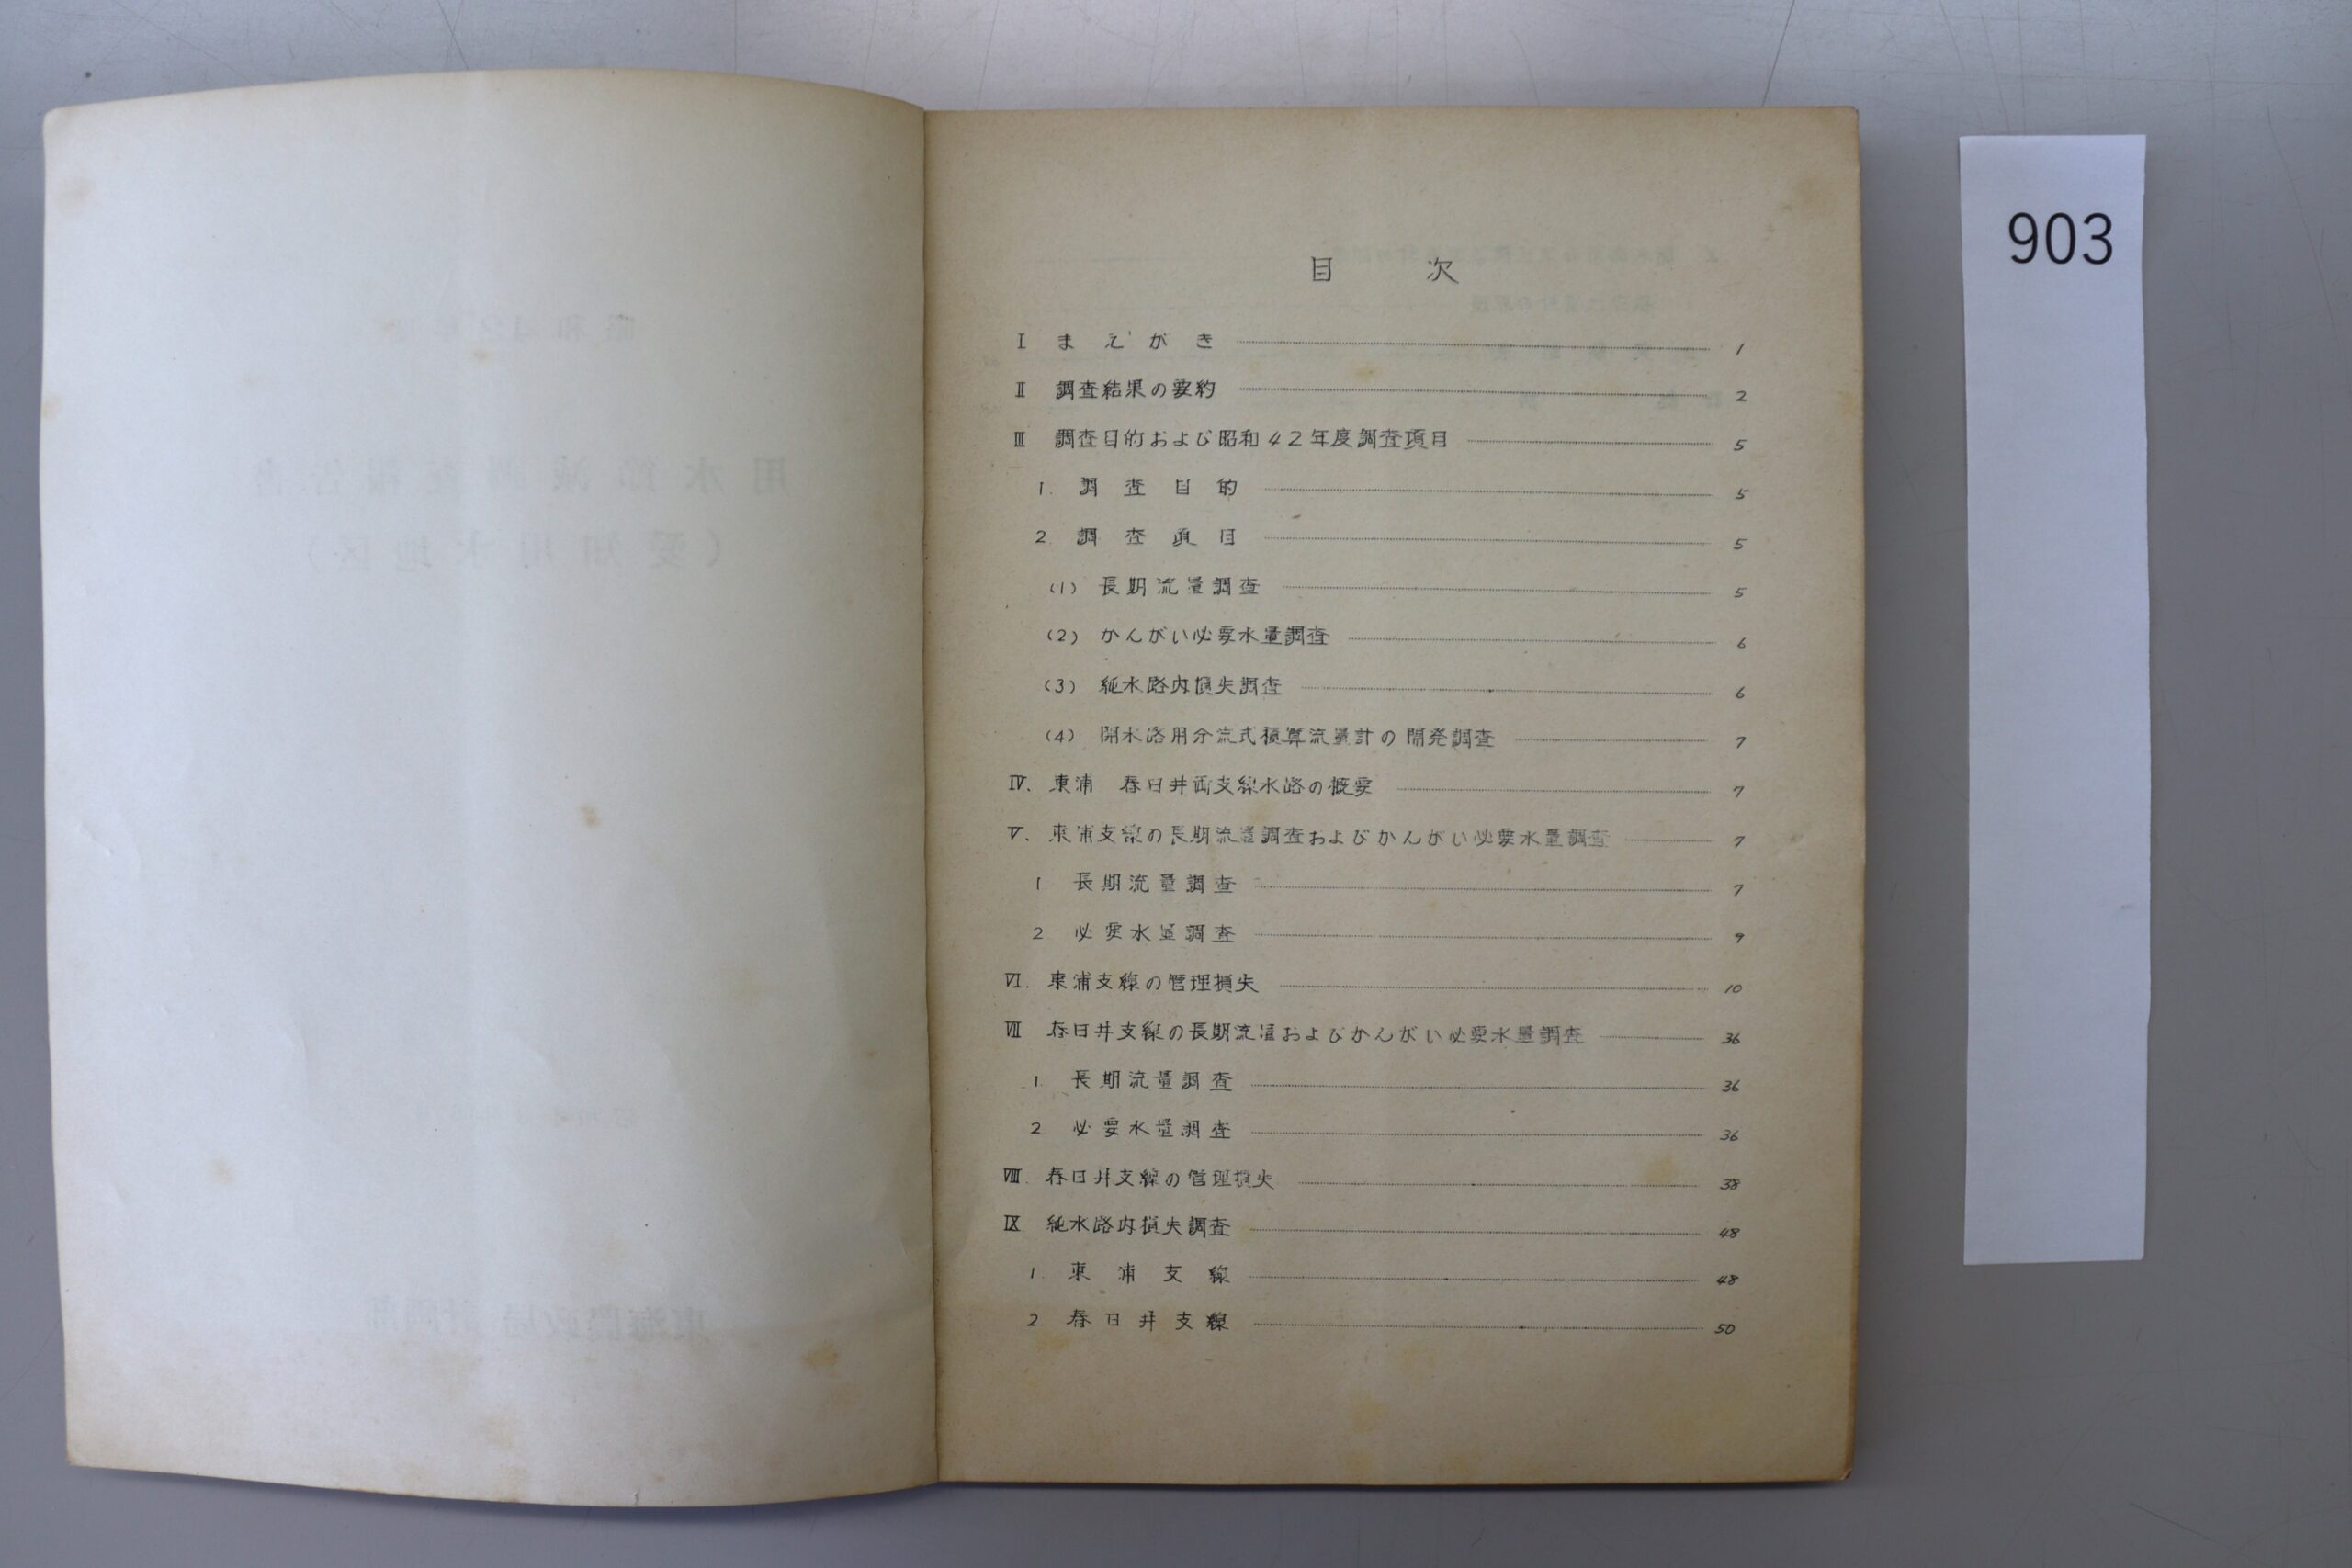 目 次
Ⅰ まえがき 1
Ⅱ 調査結果の要約 2
Ⅲ 調査目的および昭和42年度調査項目 5
1. 調査目的 5
2. 調査項目 5
(1) 長期流量調査 5
(2) かんがい必要水量調査 6
(3) 純水路内損失調査 6
(4) 開水路用分流式積算流量計の開発調査 7
Ⅳ. 東浦 春日井両支線水路の概要 7
Ⅴ. 東浦支線の長期流量調査およびかんがい必要水量調査 7
1 長期流量調査 7
2 必要水量調査 9
Ⅵ. 東浦支線の管理損失 10
Ⅶ 春日井支線の長期流量およびかんがい必要水量調査 36
1. 長期流量調査 36
2. 必要水量調査 36
Ⅷ. 春日井支線の管理損失 38
Ⅸ 純水路内損失調査 48
1. 東浦支線 48
2 春日井支線 50
903
昭和42年度
用水節減調査報告書
(愛知用水地区)
東海農政局計画部